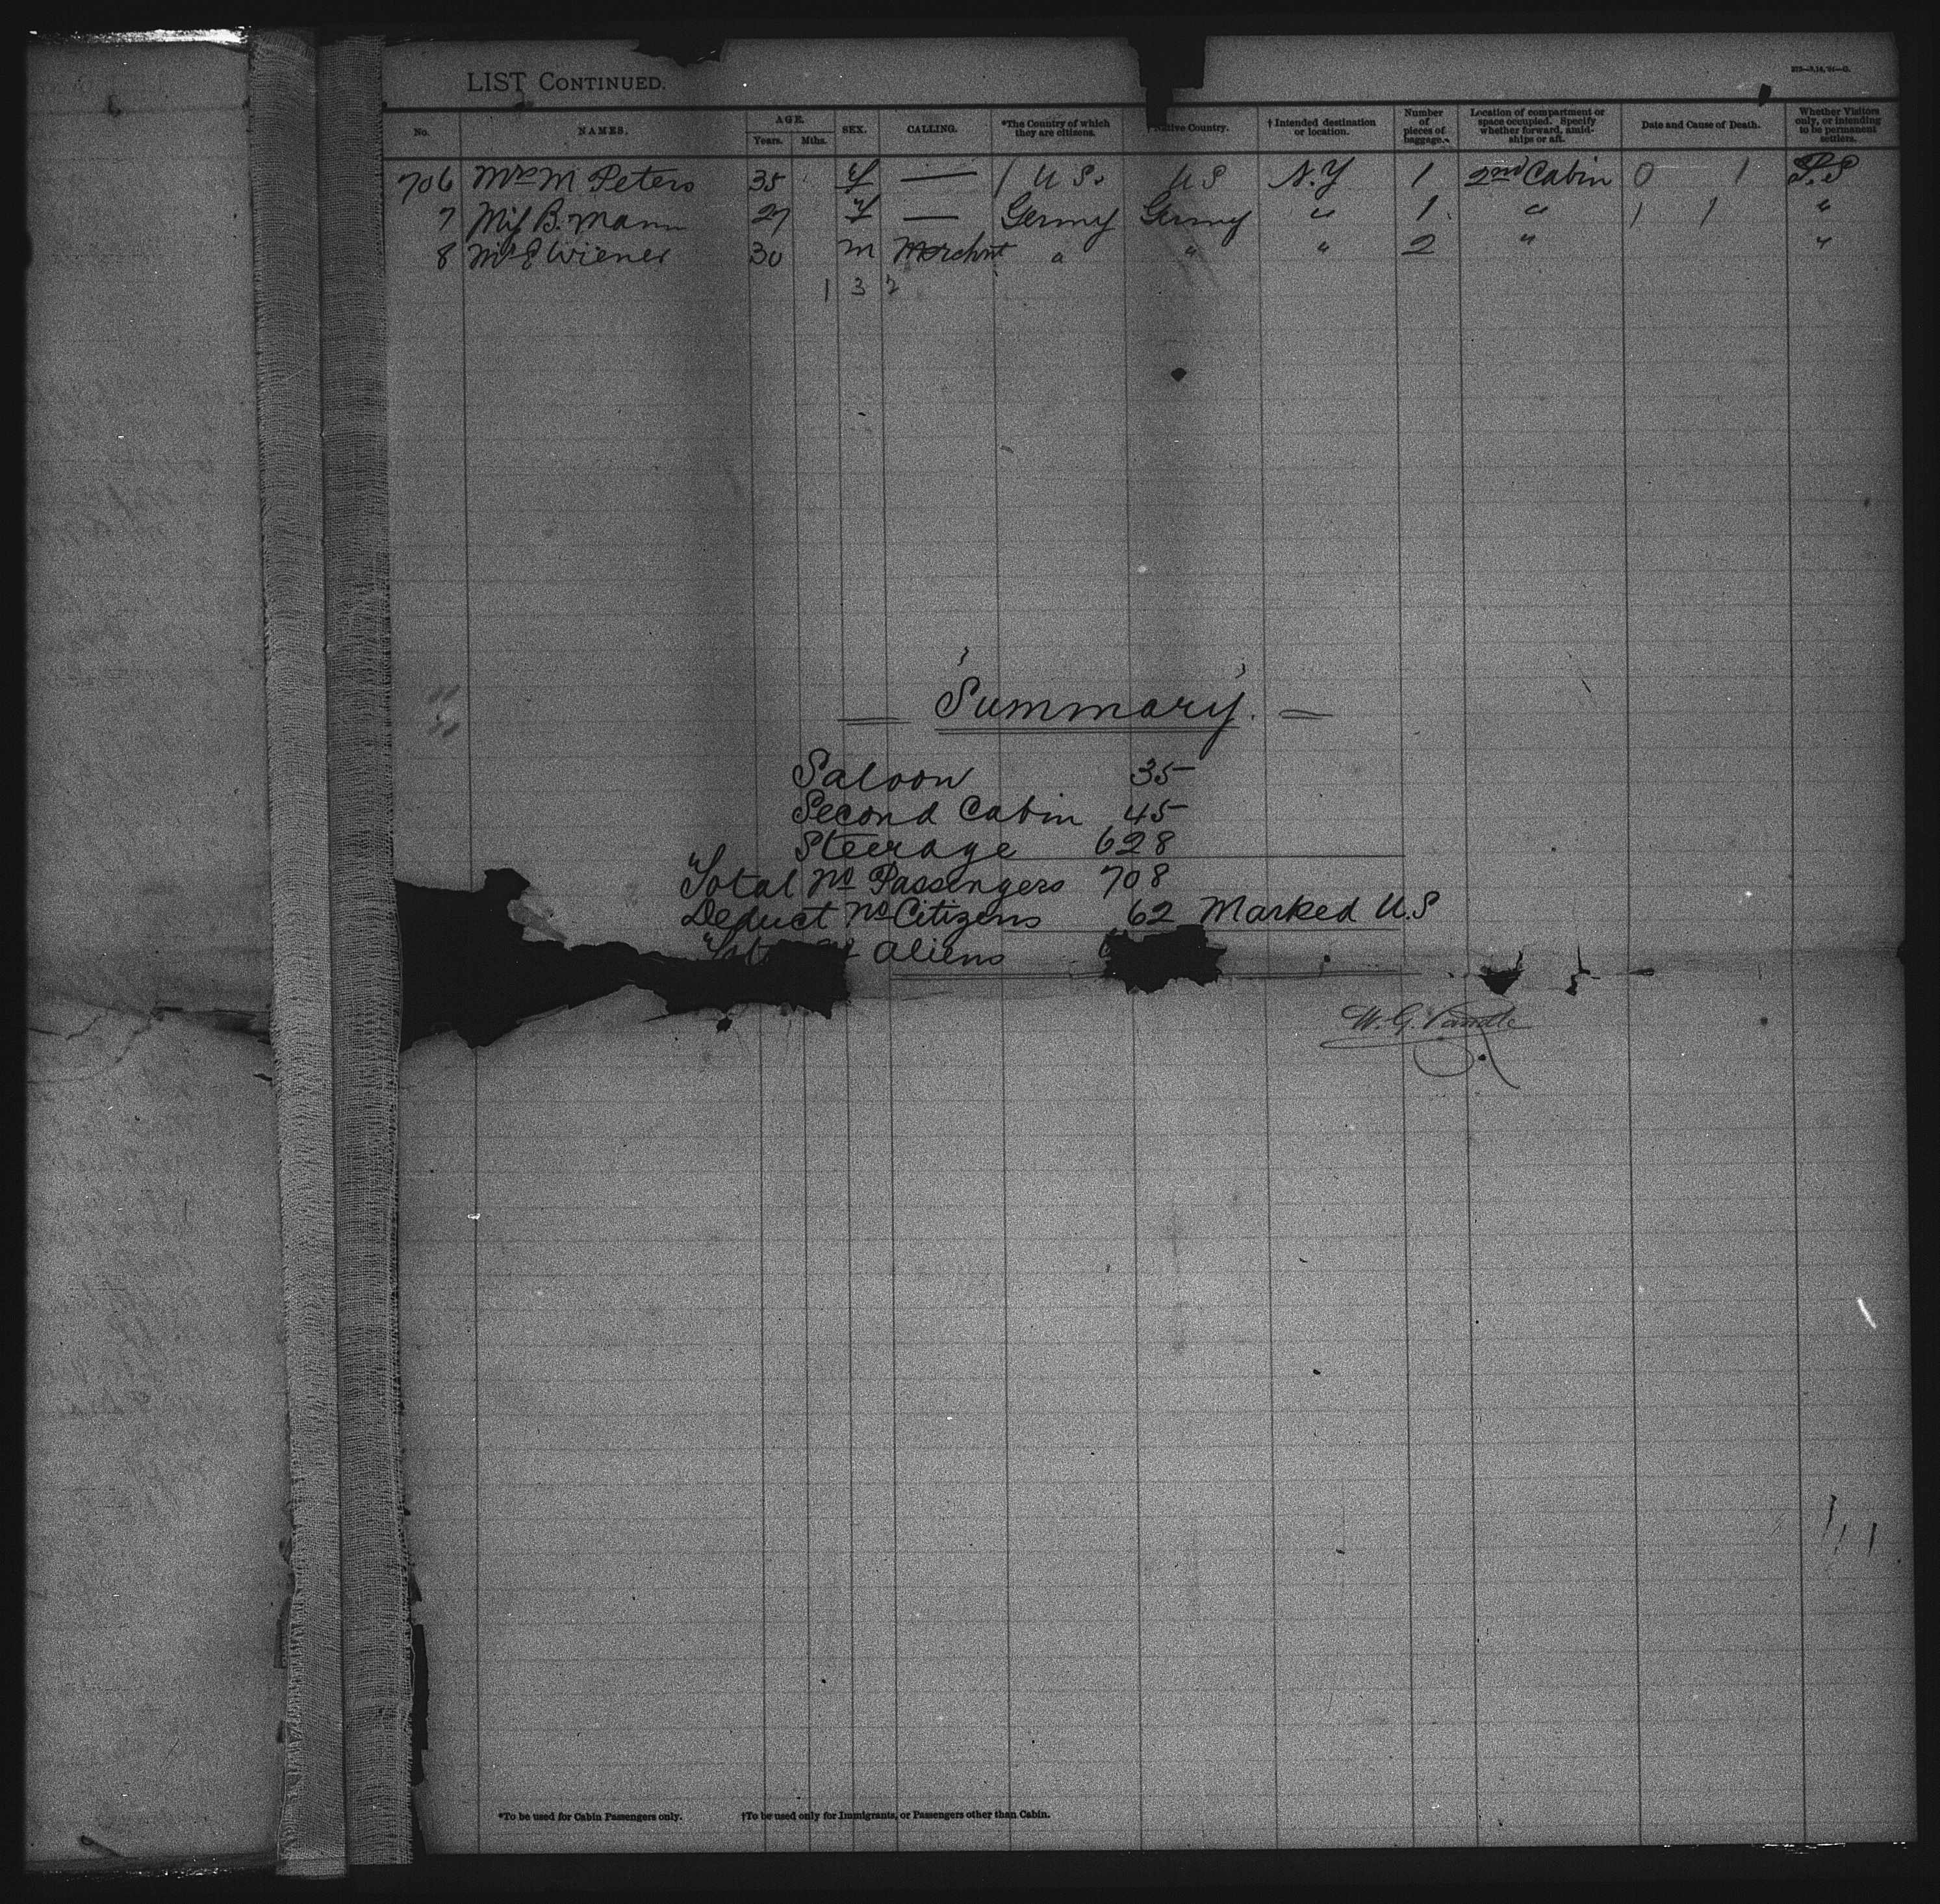 LIST CONTINUED.
No. NAMES. AGE. Years. Mths. SEX. CALLING. *The Country of which they are citizens. †Native Country. †Intended destination or location. Number of pieces of baggage. Location of compartment or space occupied. Specify whether forward, amidships or aft. Date and Cause of Death. Whether Visitors only, or intending to be permanent settlers.
706 Mrs M Peters 35 f — / U S. U S N.Y 1 2nd Cabin 0 1 P.S
7 Miss B. Mann 27 f — Germy Germy " 1 " 1 1 "
8 Mr E Wiener 30 m Merchnt " " " 2 " "
1 3 2
Summary.
Saloon 35
Second Cabin 45
Steerage 628
Total No Passengers 708
Deduct No Citizens 62 Marked U.S
Aliens
W. G.
*To be used for Cabin Passengers only. †To be used only for Immigrants, or Passengers other than Cabin.